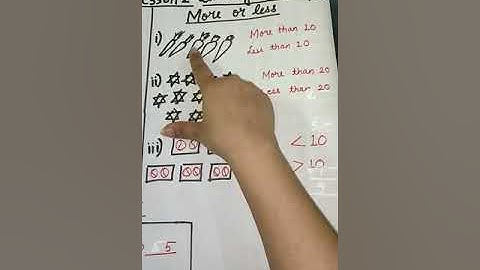 More or less
i) More than 10
Less than 10
ii) More than 20
Less than 20
iii) < 10
> 10
5